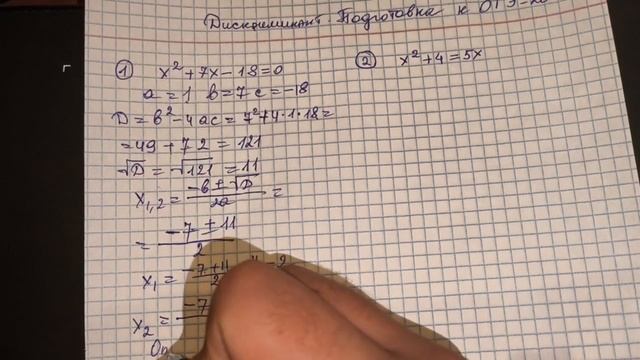 Дискриминант. Подготовка к ОГЭ-20
① x² + 7x - 18 = 0
a = 1 b = 7 c = -18
D = b² - 4ac = 7² + 4·1·18 =
= 49 + 72 = 121
√D = √121 = 11
x₁,₂ = (-b ± √D)/2a =
= (-7 ± 11)/2
x₁ = (-7 + 11)/2
x₂ = -7
② x² + 4 = 5x